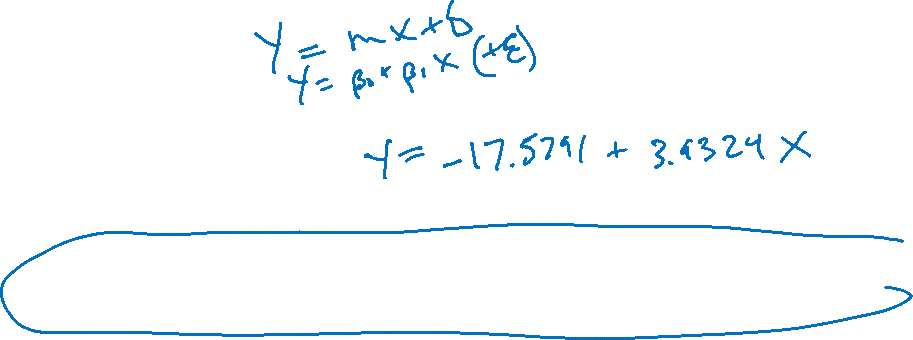 Y = mx+b
Y = β₀ + β₁ X (+ε)
Y = -17.5791 + 3.9324 X